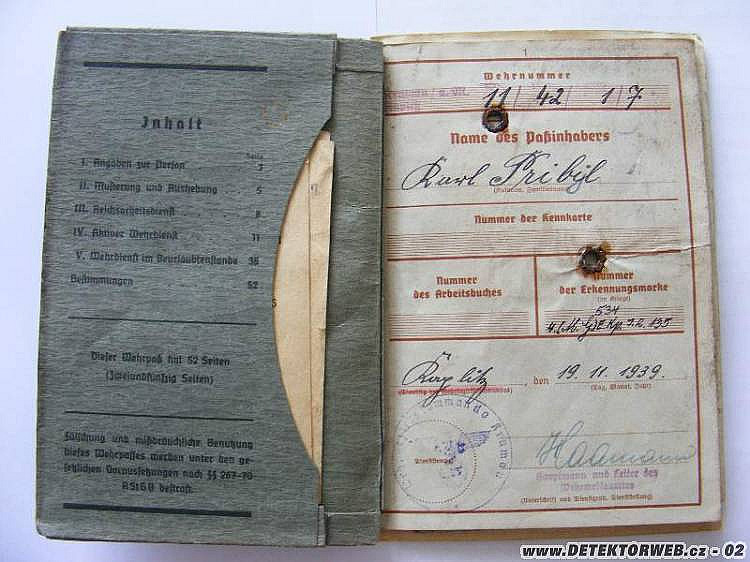 Inhalt
Seite
I. Angaben zur Person 3
II. Musterung und Aushebung 5
III. Reichsarbeitsdienst 8
IV. Aktiver Wehrdienst 11
V. Wehrdienst im Beurlaubtenstande 36
Bestimmungen 52
Dieser Wehrpaß hat 52 Seiten
(Zweiundfünfzig Seiten)
Fälschung und mißbräuchliche Benutzung
dieses Wehrpasses werden unter den ge-
setzlichen Voraussetzungen nach §§ 267-70
RStGB bestraft.
1
Wehrnummer
11/ 42/ 1/7
Name des Paßinhabers
Karl Pribyl
Nummer der Kennkarte
Nummer
des Arbeitsbuches
Nummer
der Erkennungsmarke
(im Kriege)
534
Kaplitz, den 19. 11. 1939.
(Tag, Monat, Jahr)
kommando Krumau
Dienststempel
Haamann
Hauptmann und Leiter des
Wehrmeldeamtes
(Unterschrift und Dienstgrad, Dienststellung)
www.DETEKTORWEB.cz - 02